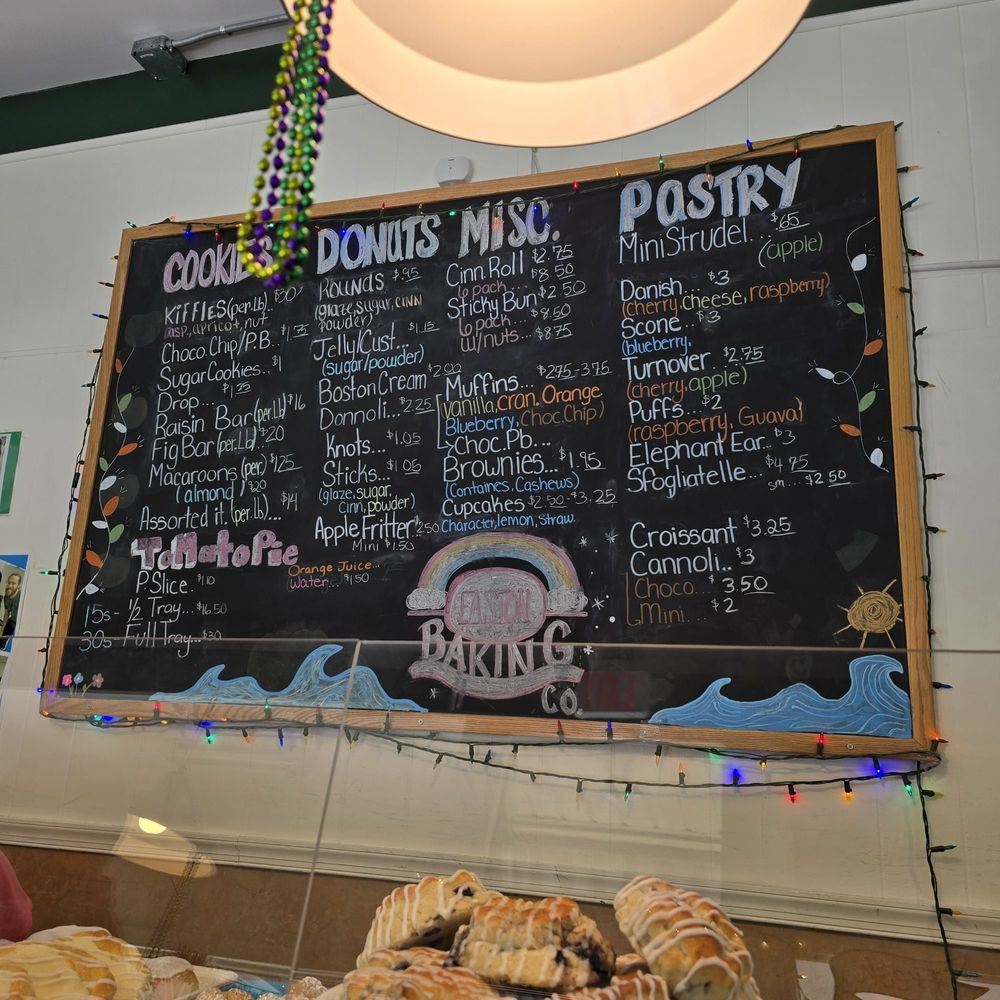 COOKIES
KIFFLES (per.lb).. $30
asp, apricot, nut.
Choco.Chip/P.B... $1.75
Sugar Cookies... $1
Drop... $1.25
Raisin Bar (per.Lb) $16
Fig Bar (per.Lb) $20
Macaroons (per) $1.25
(almond) $20
Assorted it. (per.lb)... $14
TomatoPie
P.Slice.. $1.10
15s- ½ Tray... $16.50
30s- Full Tray... $30
DONUTS
Rounds $.95
(glaze, sugar, cinn
powder)
Jelly/Cust... $1.15
(sugar/powder)
Boston Cream $2.00
Donnoli... $2.25
Knots... $1.05
Sticks... $1.05
(glaze, sugar,
cinn, powder)
Apple Fritter $2.50
Mini $1.50
Orange Juice...
Water... $1.50
MISC.
Cinn.Roll $2.75
6 pack... $8.50
Sticky Bun $2.50
6 pack... $8.50
w/nuts... $8.75
Muffins... $2.75-3.75
Vanilla, cran. Orange
Blueberry, Choc.Chip)
Choc.Pb...
Brownies... $1.95
(Containes. Cashews)
Cupcakes $2.50-$3.25
Character, lemon, straw.
EASTON
BAKING
CO.
PASTRY
Mini Strudel... $.65
(apple)
Danish... $3
(cherry, cheese, raspberry)
Scone... $3
(blueberry,
Turnover... $2.75
(cherry, apple)
Puffs... $2
(raspberry, Guava)
Elephant Ear.. $3
Sfogliatelle... $4.75
sm... $2.50
Croissant $3.25
Cannoli.. $3
Choco... $3.50
Mini... $2